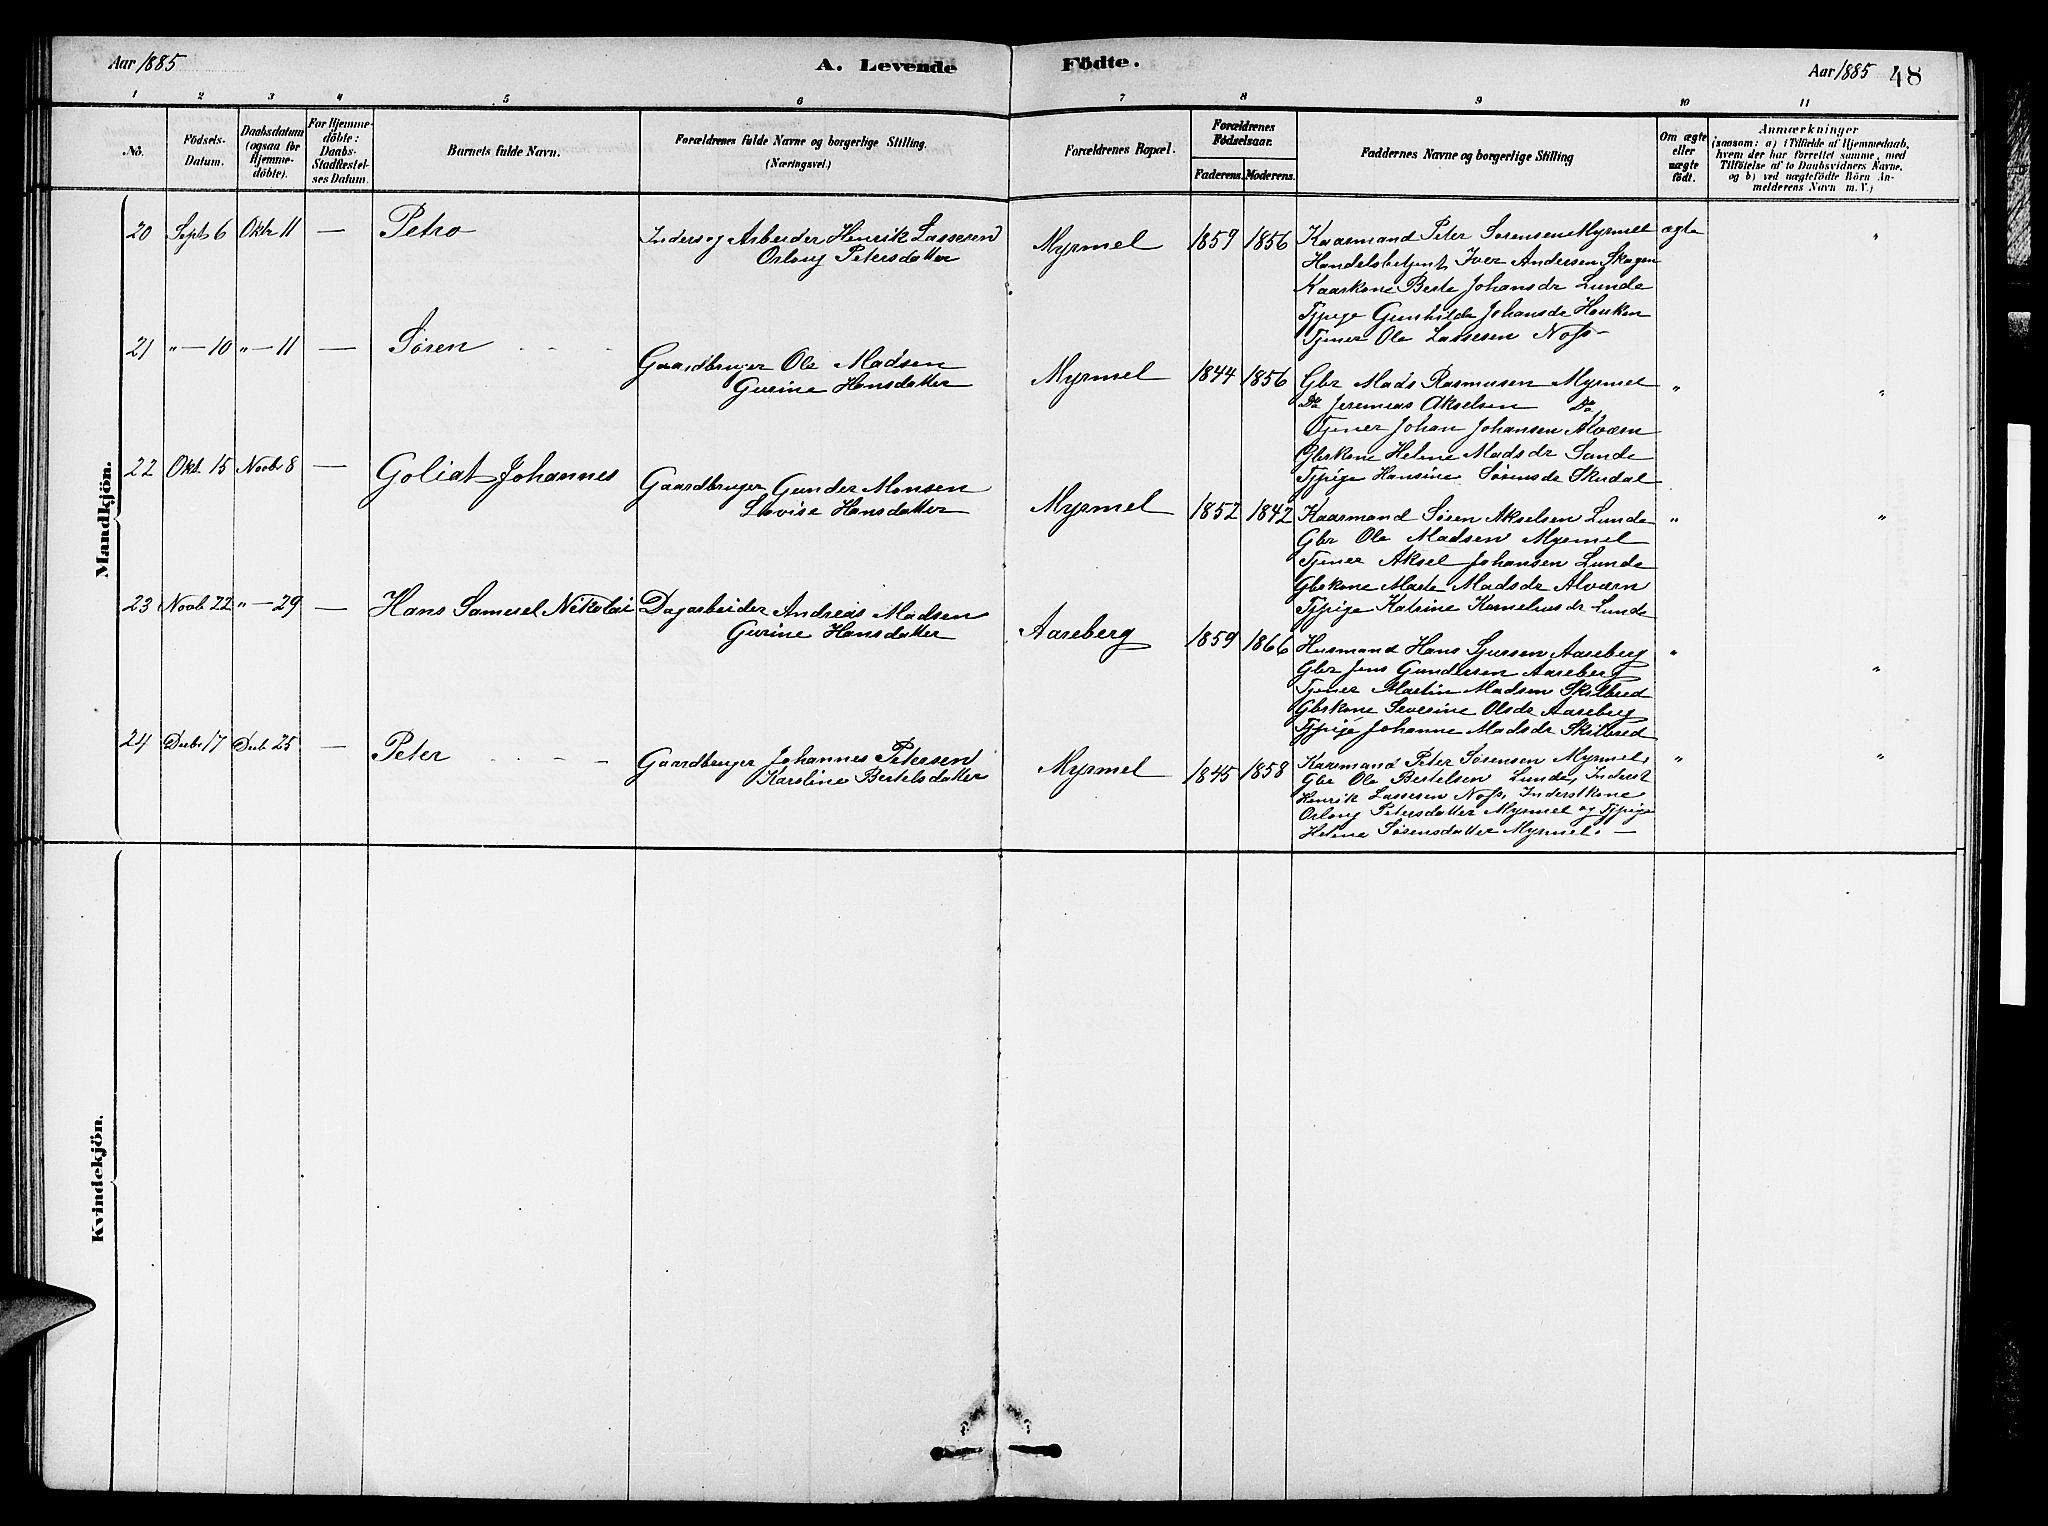 Aar 1885
A. Levende Födte.
Aar 1885 48
1 2 3 4 5 6 7 8 9 10 11
No.
Födsels-Datum.
Daabsdatum (ogsaa for Hjemme-döbte).
For Hjemme-döbte: Daabs-Stadfæstel-ses Datum.
Barnets fulde Navn.
Forældrenes fulde Navne og borgerlige Stilling. (Næringsvei.)
Forældrenes Bopæl.
Forældrenes Födselsaar.
Faderens. Moderens.
Faddernes Navne og borgerlige Stilling
Om ægte eller uægte födt.
Anmærkninger
(saasom: a) i Tilfælde af Hjemmedaab, hvem der har forrettet samme, med Tilföielse af to Daabsvidners Navne, og b) ved uægtefödte Börn An-melderens Navn m. V.)
Mandkjön.
20 Sept 6 Oktr 11 — Petro
Inders og Arbeider Henrik Lassesen
Orloug Petersdatter
Myrmel 1859 1856
Kaarmand Peter Sørensen Myrmel
Handelsbetjent Iver Andersen Skagen
Kaarkone Berte Johansdr Lunde
Tjpige Gunhilde Johansdr Hauken
Tjener Ole Lassesen Noss
ægte "
21 " — 10 " — 11 — Søren
Gaardbruger Ole Madsen
Gurine Hansdatter
Myrmel 1844 1856
Gbr Mads Rasmusen Myrmel
Do Jeremias Akselsen Do
Tjener Johan Johansen Alværn
Gbrkone Helene Madsdr Sande
Tjpige Hansine Sørensdr Skudal
" "
22 Okt. 15 Novb 8 — Goliat Johannes
Gaardbruger Gunder Monsen
Lovise Hansdatter
Myrmel 1852 1842
Kaarmand Søren Akselsen Lunde
Gbr Ole Madsen Myrmel
Tjener Aksel Johansen Lunde
Gbrkone Marte Madsdr Alværn
Tjpige Katrine Kornelius dr Lunde
" "
23 Novb 22 " — 29 — Hans Samuel Nikolai
Dagarbeider Andreas Madsen
Gurine Hansdatter
Aareberg 1859 1866
Husmand Hans Sjursen Aareberg
Gbr Jens Gundersen Aareberg
Tjener Martin Madsen Skilbred
Gbrkone Severine Olsdr Aareberg
Tjpige Johanne Madsdr Skilbred
" "
24 Decbr 17 Decb 25 — Peter
Gaardbruger Johannes Petersen
Karoline Bertelsdatter
Myrmel 1845 1858
Kaarmand Peter Sørensen Myrmel,
Gbr Ole Bertelsen Lunde, Inderst
Henrik Lassesen Noss, Inderstkone
Orloug Petersdatter Myrmel og Tjpige
Helene Sørensdatter Myrmel. —
" "
Kvindekjön.